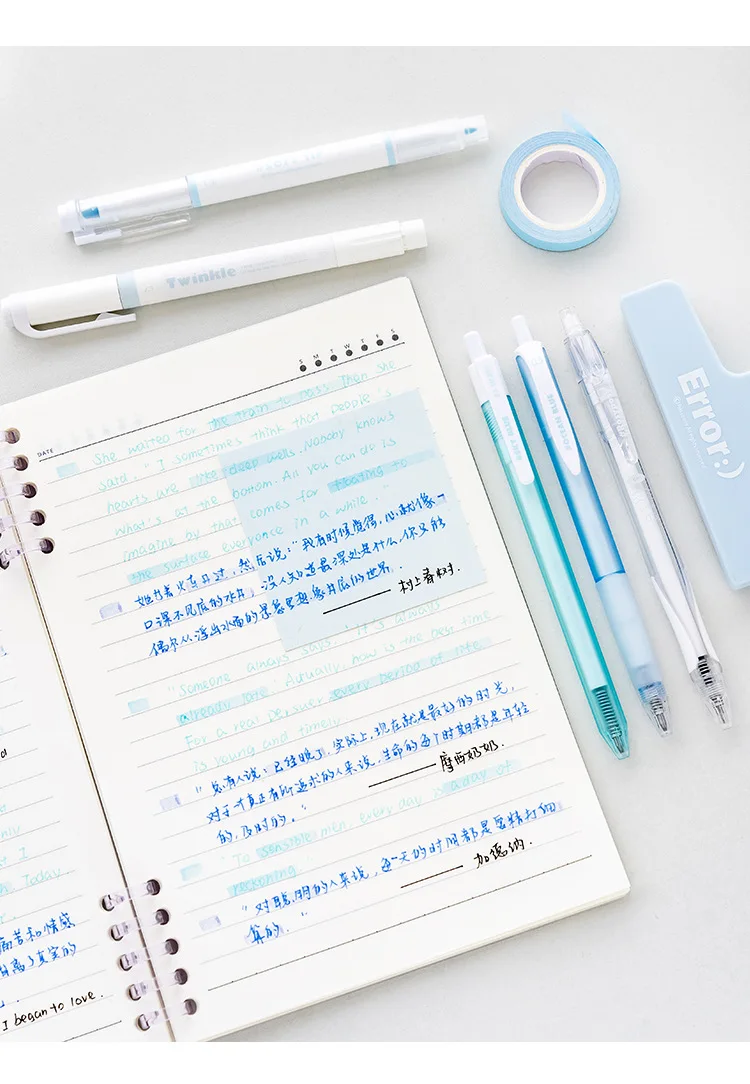 Twinkle
S M T W T F S
DATE
She waited for the train to pass. Then she
said, "I sometimes think that people's
hearts are like deep wells. Nobody knows
what's at the bottom. All you can do is
imagine by that comes for floating to
the surface everyone in a while."
她等着火车开过,然后说:"我有时候觉得,心就像一
口深不见底的水井,没人知道最深处是什么,你只能
偶尔从浮出水面的
村上春树.
"Someone always says: It's always
already late. Actually, now is the best time
For a real persuer, every period of life
is young and timely.
"总有人说:已经晚了,实际上,现在就是最好的时光,
对于真正有所追求的人来说,生命的每个时期都是年轻
的,及时的。"
摩西奶奶.
"To sensible men, every day is a day of
reckoning.
"对聪明的人来说,每一天的时间都是要精打细
算的。"
加德纳.
Today
痛苦和情感
真实的
I began to love.
Error:)